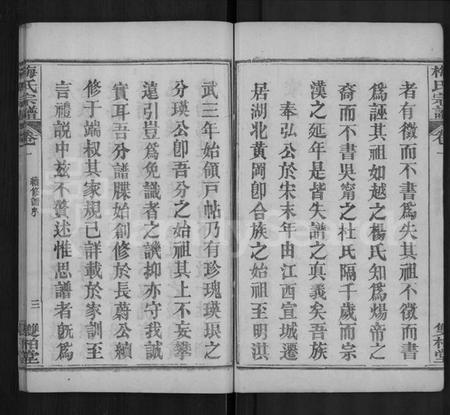 梅氏宗譜
卷一
雙柏堂
者有徵而不書爲失其祖不徵而書
爲誣其祖如越之楊氏知爲煬帝之
裔而不書吳甯之杜氏隔千歲而宗
漢之延年是皆失譜之真義矣吾族
奉弘公於宋末年由江西宣城遷
居湖北黃岡卽合族之始祖至明洪
武三年始領戸帖乃有珍瑰瑛琅之
分瑛公卽吾分之始祖其上不妄攀
遠引豈爲免識者之譏抑亦守我誠
實耳吾分譜牒始創修於長蔚公續
修于端叔其家規已詳載於家訓至
言禮説中玆不贅述惟思譜者旣爲
梅氏宗譜
卷一
續修首序
三
雙柏堂